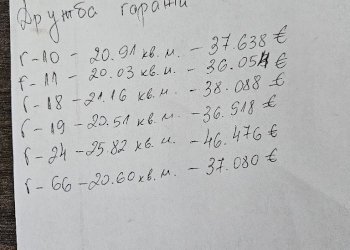 Дружба гаражи
Г-10 - 20.91 кв.м. - 37.638 €
Г-11 - 20.03 кв.м. - 36.054 €
Г-18 - 21.16 кв.м. - 38.088 €
Г-19 - 20.51 кв.м. - 36.918 €
Г-24 - 25.82 кв.м. - 46.476 €
Г-66 - 20.60 кв.м. - 37.080 €